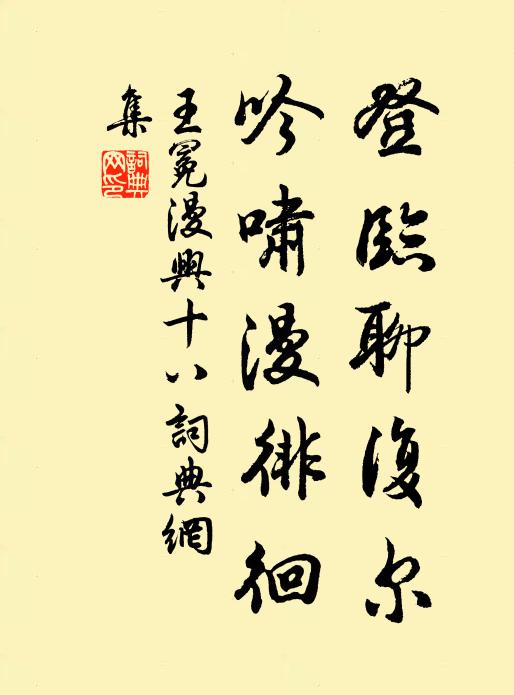 登臨聊復尔
吟嘯漫徘徊
王冕漫興十八詞典網
集
詞典網印